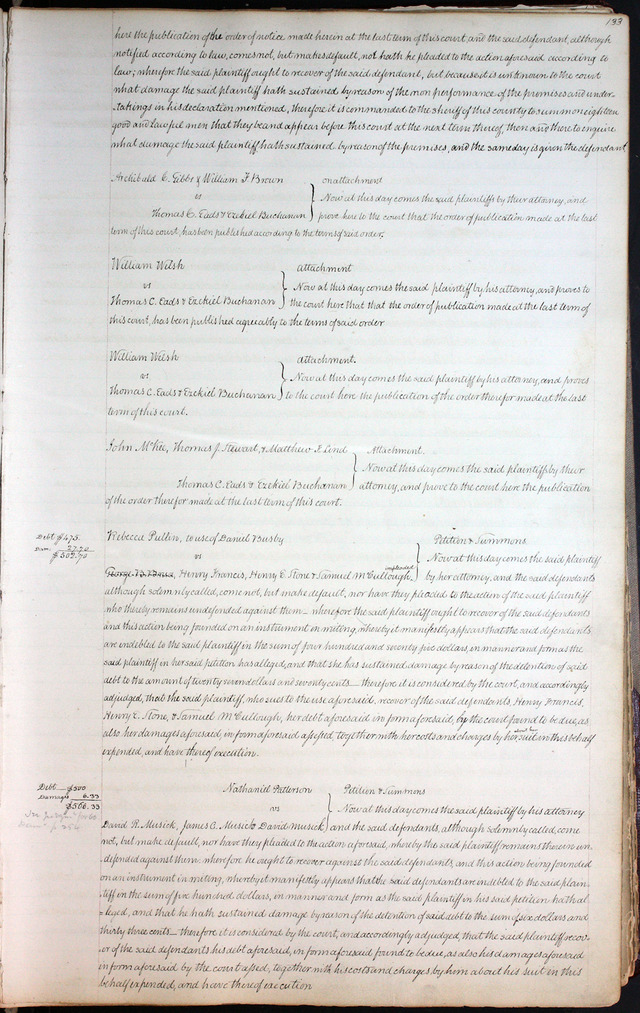 133
here the publication of the order of notice made herein at the last term of this court, and the said defendant, although
notified according to law, comes not, but makes default, nor hath he pleaded to the action aforesaid according to
law; wherefore the said plaintiff ought to recover of the said defendant, but because it is unknown to the court
what damage the said plaintiff hath sustained by reason of the non performance of the premises and under-
takings in his declaration mentioned, therefore it is commanded to the sheriff of this county to summon eighteen
good and lawful men that they be and appear before this court at the next term thereof, then and there to enquire
what damage the said plaintiff hath sustained by reason of the premises, and the same day is given the defendant
Archibald C. Gibbs & William F. Brown
vs
Thomas C. Eads & Ezekiel Buchanan
on attachment
Now at this day comes the said plaintiffs by their attorney, and
prove here to the court that the order of publication made at the last
term of this court, has been published according to the terms of said order.
William Welsh
vs
Thomas C. Eads & Ezekiel Buchanan
attachment
Now at this day comes the said plaintiff by his attorney, and proves to
the court here that that the order of publication made at the last term of
this court, has been published agreeably to the terms of said order
William Welsh
vs
Thomas C. Eads & Ezekiel Buchanan
attachment.
Now at this day comes the said plaintiff by his attorney, and proves
to the court here the publication of the order therefor made at the last
term of this court.
John McKee, Thomas J. Stewart, & Matthew E. Lind
Thomas C. Eads & Ezekiel Buchanan
Attachment.
Now at this day comes the said plaintiffs by their
attorney, and prove to the court here the publication
of the order therefor made at the last term of this court.
Debt $475.
Dam. 27.70
$502.70
Rebecca Pullin, to use of Daniel Busby
vs
Henry Francis, Henry E. Stone & Samuel McCullough, impleaded
Petition & Summons
Now at this day comes the said plaintiff
by her attorney, and the said defendants
although solemnly called, come not, but make default, nor have they pleaded to the action of the said plaintiff
who thereby remains undefended against them — wherefore the said plaintiff ought to recover of the said defendants
and this action being founded on an instrument in writing, whereby it manifestly appears that the said defendants
are indebted to the said plaintiff in the sum of four hundred and seventy five dollars, in manner and form as the
said plaintiff in her said petition has alleged, and that she has sustained damage by reason of the detention of said
debt to the amount of twenty seven dollars and seventy cents — therefore it is considered by the court, and accordingly
adjudged, that the said plaintiff, who sues to the use aforesaid, recover of the said defendants, Henry Francis,
Henry E. Stone, & Samuel McCullough, her debt aforesaid in form aforesaid, by the court found to be due, as
also her damages aforesaid, in form aforesaid assessed, together with her costs and charges by her about her suit in this behalf
expended, and have thereof execution.
Debt $500
Damages 6.33
$506.33
Nathaniel Patterson
vs
David R. Musick, James C. Musick & David Musick,
Petition & Summons
Now at this day comes the said plaintiff by his attorney
and the said defendants, although solemnly called, come
not, but make default, nor have they pleaded to the action aforesaid, whereby the said plaintiff remains therein un-
defended against them; wherefore he ought to recover against the said defendants, and this action being founded
on an instrument in writing, whereby it manifestly appears that the said defendants are indebted to the said plain-
tiff in the sum of five hundred dollars, in manner and form as the said plaintiff in his said petition hath al-
=leged, and that he hath sustained damage by reason of the detention of said debt to the sum of six dollars and
thirty three cents — therefore it is considered by the court, and accordingly adjudged, that the said plaintiff recov-
er of the said defendants his debt aforesaid, in form aforesaid found to be due, as also his damages aforesaid
in form aforesaid by the court assessed, together with his costs and charges by him about his suit in this
behalf expended, and have thereof execution